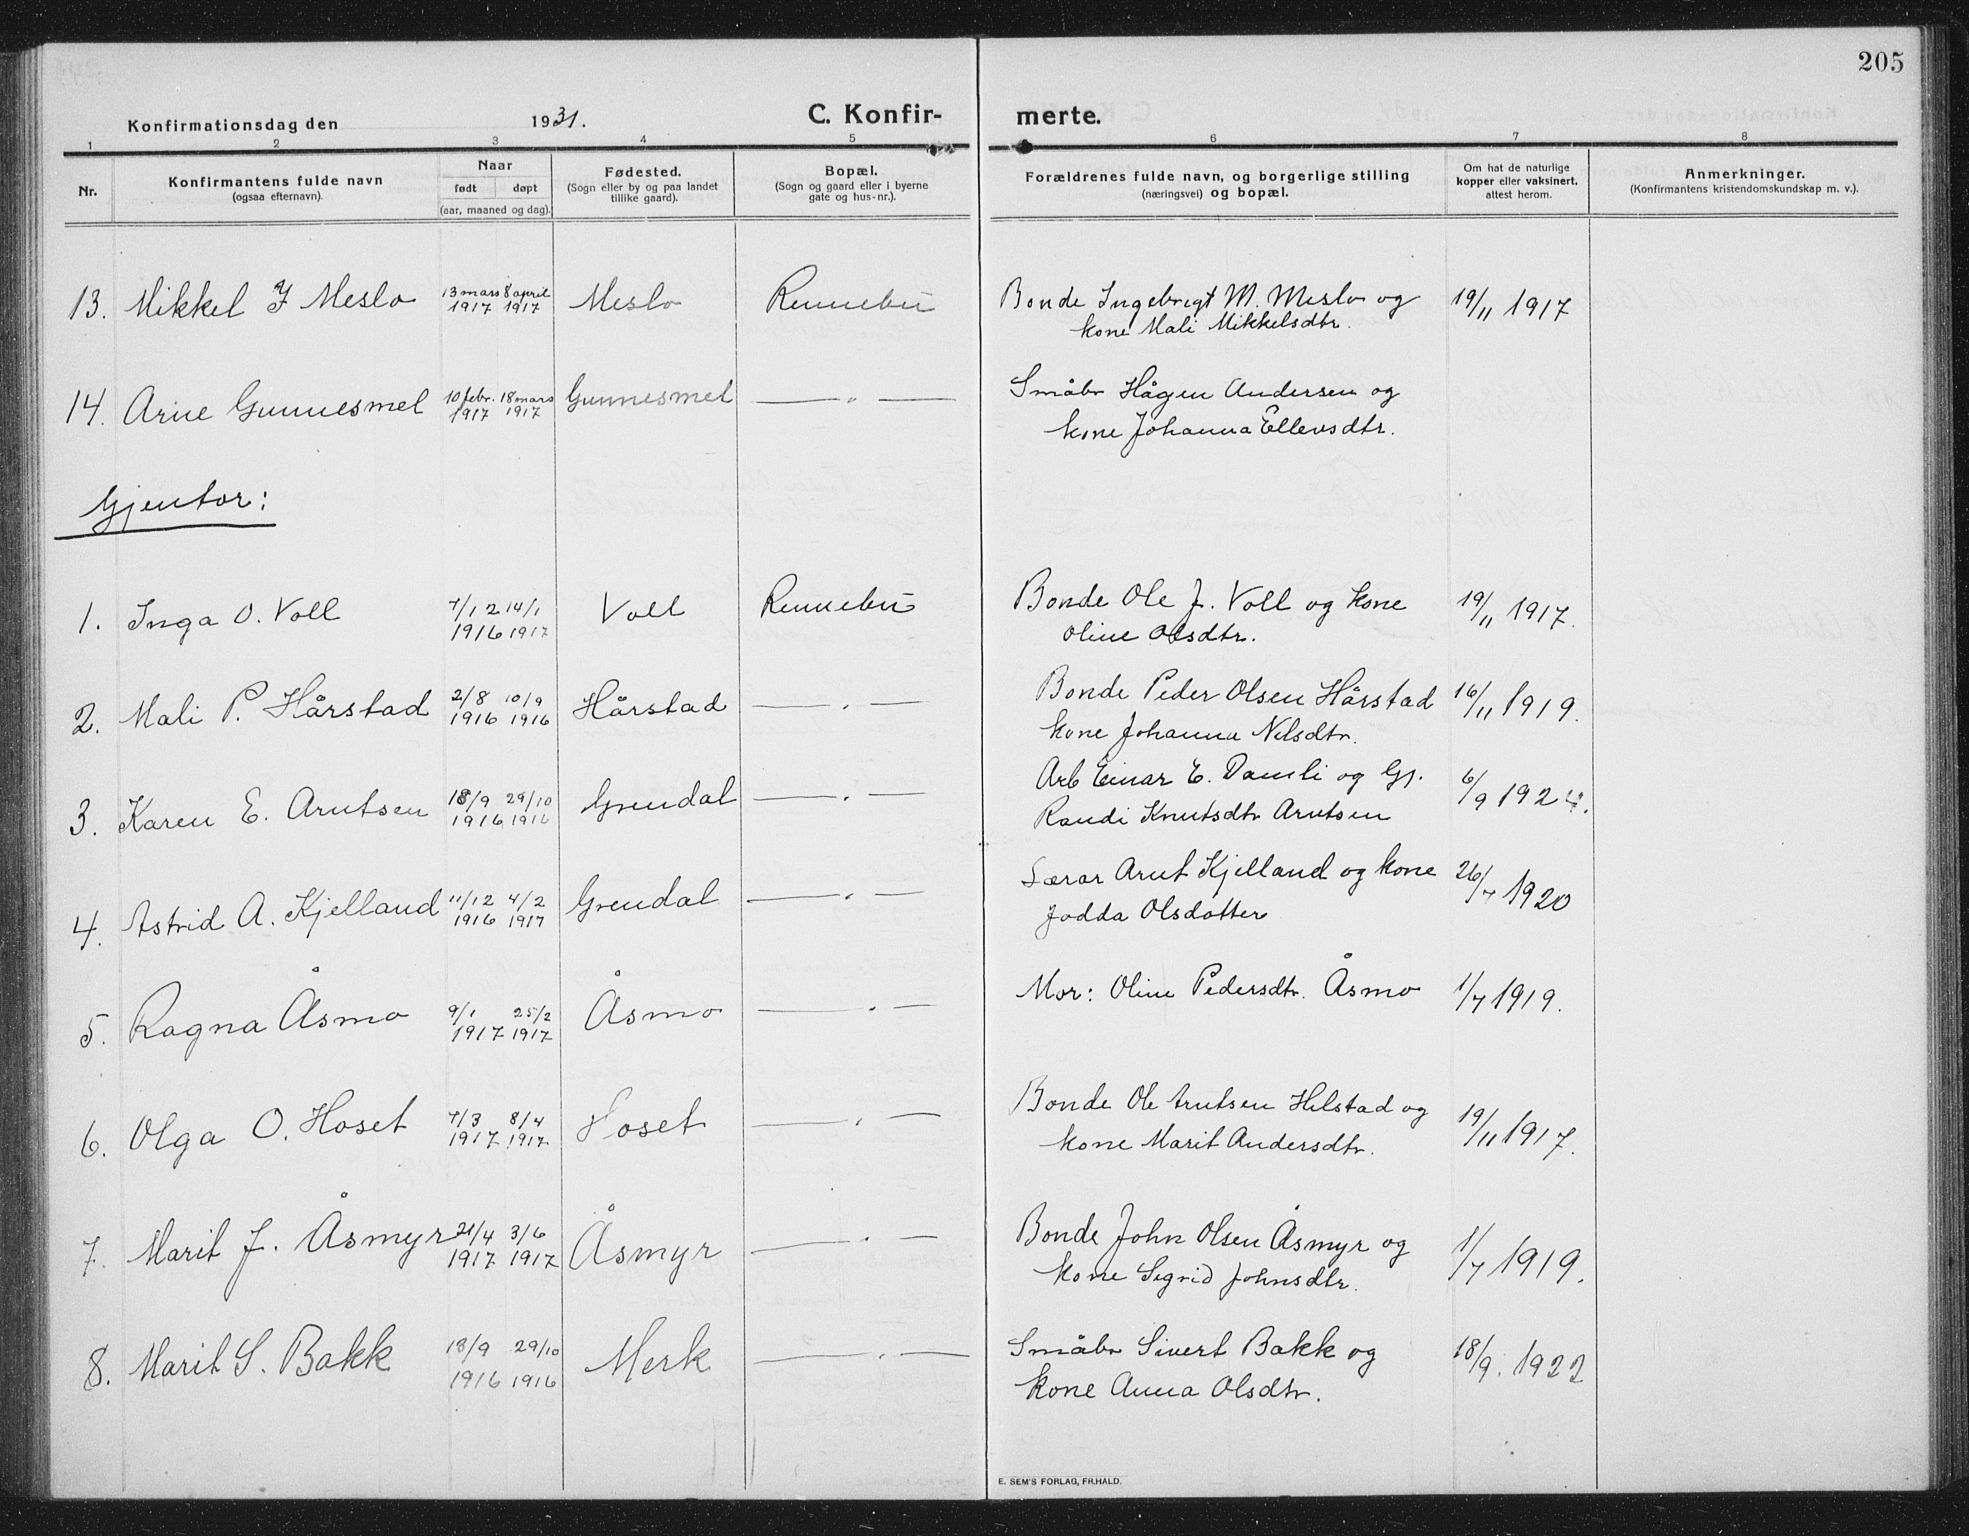 205
Konfirmationsdag den 1931. C. Konfirmerte.
1 2 3 4 5 6 7 8
Nr.
Konfirmantens fulde navn
(ogsaa efternavn).
Naar
født døpt
(aar, maaned og dag).
Fødested.
(Sogn eller by og paa landet
tillike gaard).
Bopæl.
(Sogn og gaard eller i byerne
gate og hus-nr.).
Forældrenes fulde navn, og borgerlige stilling
(næringsvei) og bopæl.
Om hat de naturlige
kopper eller vaksinert,
attest herom.
Anmerkninger.
(Konfirmantens kristendomskundskap m. v.).
13. Mikkel I Meslo 13 mars 1917 8 april 1917 Meslo Rennebu
Bonde Ingebrigt M. Meslo og
kone Mali Mikkelsdtr. 19/11 1917
14. Arne Gunnesmel 10 febr. 1917 18 mars 1917 Gunnesmel — " —
Småbr Hågen Andersen og
kone Johanna Ellevsdtr.
Gjentor:
1. Inga O. Voll 7/12 1916 14/1 1917 Voll Rennebu
Bonde Ole J. Voll og kone
Oline Olsdtr. 19/11 1917.
2. Mali P. Hårstad 2/8 1916 10/9 1916 Hårstad — " —
Bonde Peder Olsen Hårstad
kone Johanna Nilsdtr. 16/11 1919.
3. Karen E. Arntsen 18/9 1916 29/10 1916 Grendal — " —
Arb Einar E. Damli og Gj.
Randi Knutsdtr Arntsen 6/9 1924.
4. Astrid A. Kjelland 11/12 1916 4/2 1917 Grendal — " —
Lærar Arnt Kjelland og kone
Jodda Olsdotter 26/7 1920
5. Ragna Åsmo 9/1 1917 25/2 1917 Åsmo — " —
Mor: Oline Pedersdtr. Åsmo 1/7 1919.
6. Olga O. Hoset 7/3 1917 8/4 1917 Hoset — " —
Bonde Ole Arntsen Helstad og
kone Marit Andersdtr. 19/11 1917.
7. Marit J. Åsmyr 21/4 1917 3/6 1917 Åsmyr — " —
Bonde John Olsen Åsmyr og
kone Sigrid Johnsdtr. 1/7 1919.
8. Marit S. Bakk 18/9 1916 29/10 1916 Merk — " —
Småbr Sivert Bakk og
kone Anna Olsdtr. 18/9. 1922
E. SEM'S FORLAG, FR.HALD.